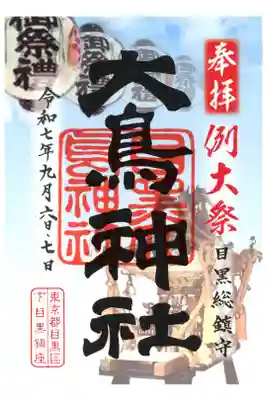 奉拝
例大祭
目黒総鎮守
大鳥神社
大鳥神社
令和七年九月六日・七日
東京都目黒区
下目黒鎮座
御祭禮
御祭禮